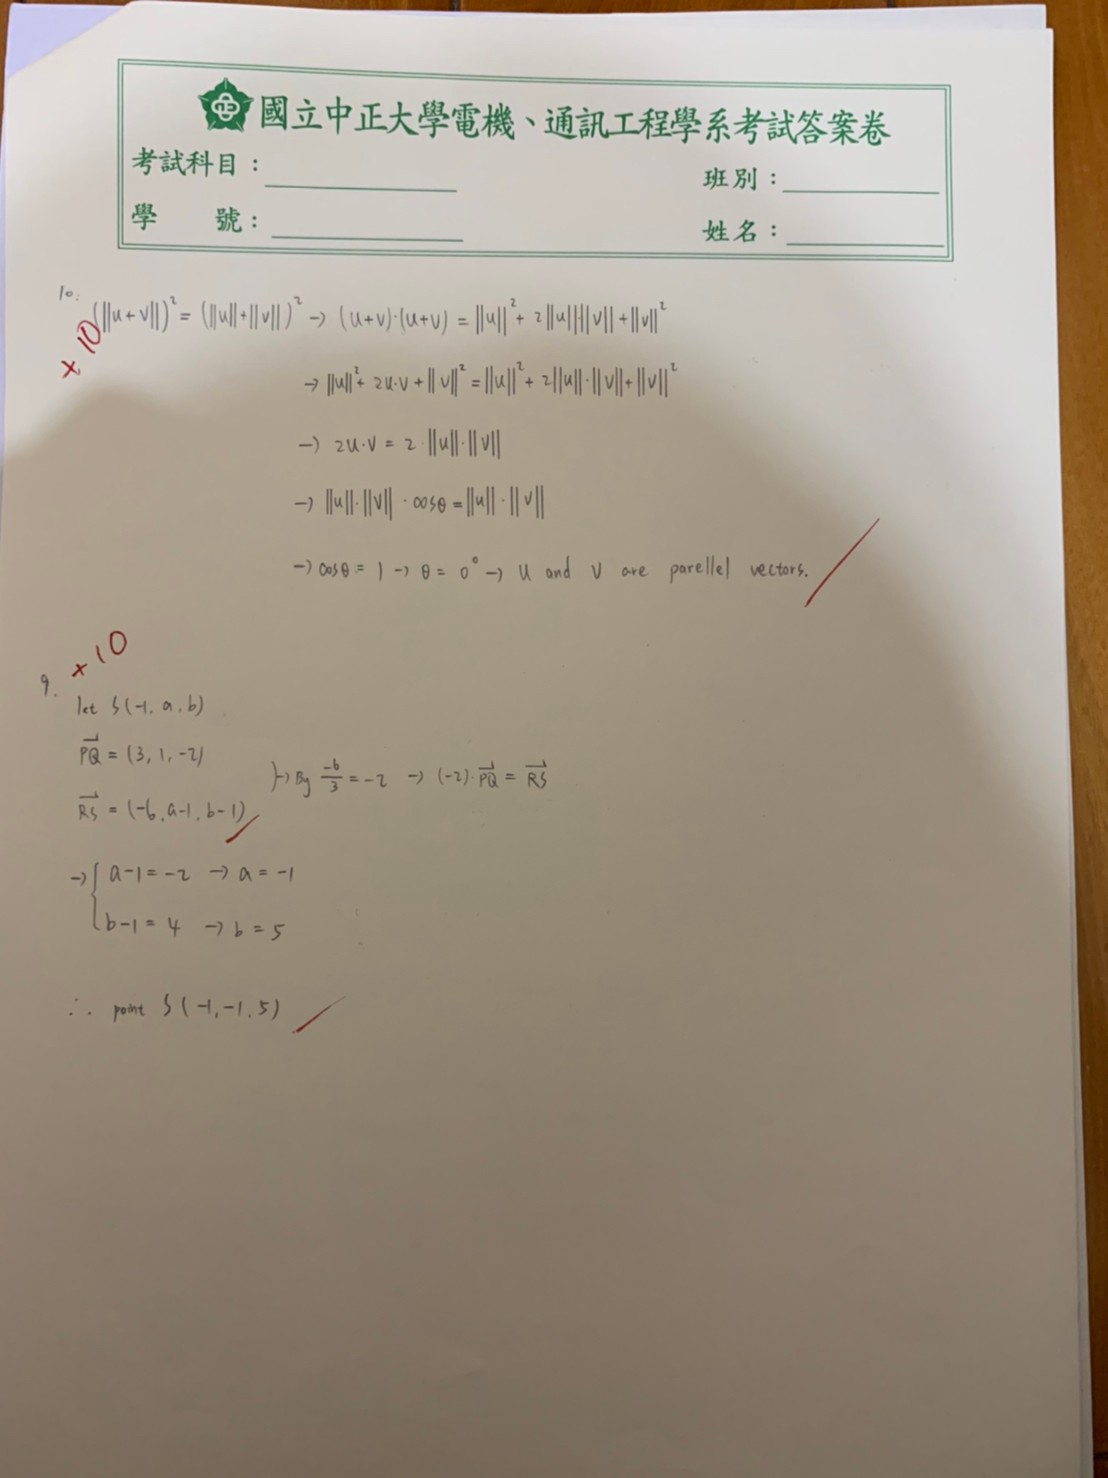 國立中正大學電機、通訊工程學系考試答案卷
考試科目：
班別：
學 號：
姓名：
10.
+10
(||u+v||)² = (||u||+||v||)² → (u+v)·(u+v) = ||u||² + 2||u||·||v|| + ||v||²
→ ||u||² + 2u·v + ||v||² = ||u||² + 2||u||·||v|| + ||v||²
→ 2u·v = 2·||u||·||v||
→ ||u||·||v||·cosθ = ||u||·||v||
→ cosθ = 1 → θ = 0° → u and v are parellel vectors.
+10
9.
let S(-1, a, b)
PQ⃗ = (3, 1, -2)
RS⃗ = (-6, a-1, b-1)
}→ By -6/3 = -2 → (-2)·PQ⃗ = RS⃗
→ { a-1 = -2 → a = -1
b-1 = 4 → b = 5
∴ point S(-1, -1, 5)